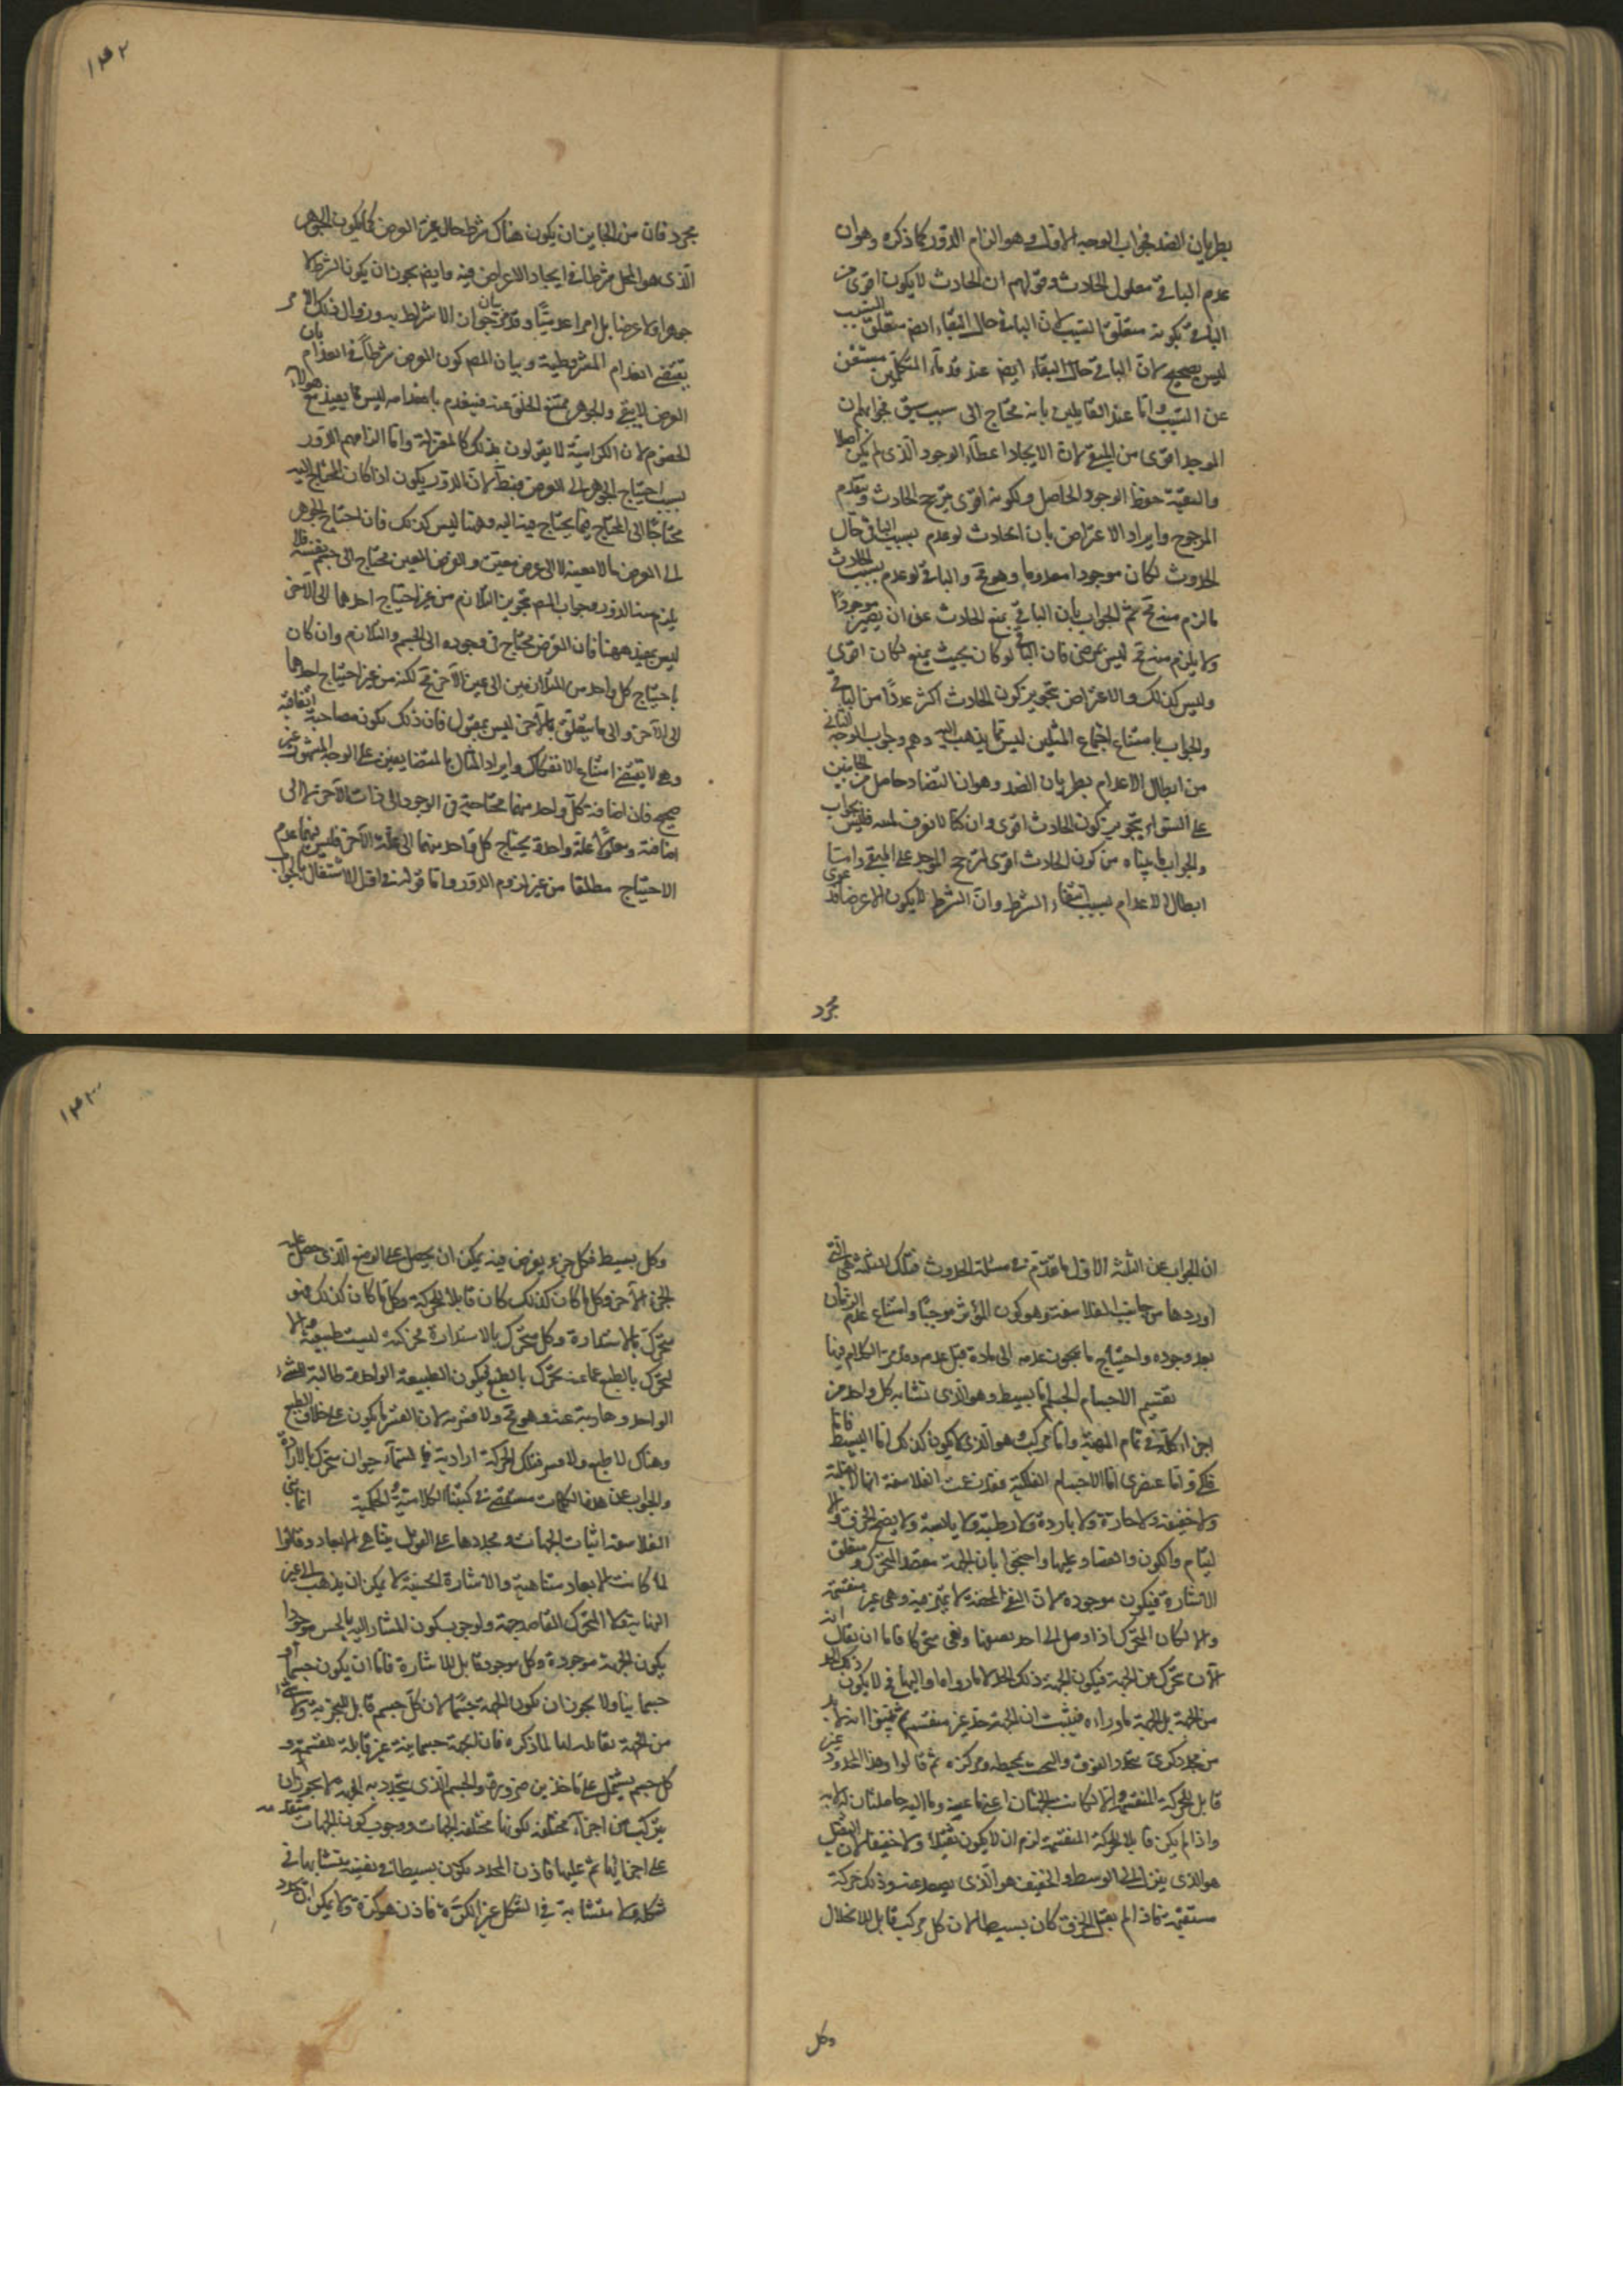 بطريان الضد فجواب الوجه الاول وهو الزام الدور كما ذكره وهو ان
عدم الباقي معلول الحادث وقولهم ان الحادث لا يكون اقوى من
الباقي بكونه متعلق السبب لان الباقي حال البقاء ايضا متعلق السبب
ليس بصحيح لان الباقي حال البقاء ايضا عند قدماء المتكلمين مستغن
عن السبب واما عند القايلين بانه محتاج الى سبب مبق فجوابهم ان
الموجد اقوى من المبقي لان الايجاد اعطاء الوجود الذي لم يكن اصلا
والتبقية حفظ الوجود الحاصل ولكونه اقوى يترجح الحادث ويتقدم
المرجوح وايراد الاعتراض بان الحادث لو عدم بسبب الباقي حال
الحدوث لكان موجودا معدوما وهو مح والباقي لو عدم بسبب الحادث
ما لزم منه مح ثم الجواب بان الباقي يمنع الحادث عن ان يصير موجودا
ولا يلزم منه مح ليس بمرضي فان الباقي لو كان بحيث يمنع لكان اقوى
وليس كذلك والاعتراض بتجويز كون الحادث اكثر عددا من الباقي
والجواب بامتناع اجتماع المثلين ليس مما يذهب اليه وهم وجواب الوجه الثاني
من ابطال الاعدام بطريان الضد وهو ان التضاد حاصل من الجانبين
على السواء بتجويز كون الحادث اقوى وان كنا لا نعرف لمه فليس بجواب
والجواب ما بيناه من كون الحادث اقوى لترجح الموجد على المبقي واما
ابطال الاعدام بسبب انتفاء الشرط وان الشرط لا يكون الا عرضا فدعوى
مجرد
مجرد فان من الجايز ان يكون هناك شرط حال غير العرض كما يكون الجوهر
الذي هو المحل شرطا في ايجاد الاعراض فيه وايضا يجوز ان يكون الشرط لا
جوهرا ولا عرضا بل امرا عدميا وقد مر بيان جواز الاشتراط به وزوال ذلك الامر
يقتضي انعدام المشروط به وبيان المص كون العرض شرطا في انعدام بان
العرض لا يبقى والجوهر يمتنع الخلو عنه فينعدم بانعدامه ليس مما يفيد مع هولاء
الخصوم لان الكرامية لا يقولون بذلك كالمعتزلة واما الزامهم الدور
بسبب احتياج الجوهر الى العرض فبط لان الدور يكون اذا كان المحتاج اليه
محتاجا الى المحتاج فيما يحتاج فيه اليه وههنا ليس كذلك فان احتياج الجوهر
الى العرض ما لا بعينه لا الى عرض معين والعرض المعين محتاج الى جسم بعينه فلا
يلزم منه الدور وجواب المص بتجويز التلازم من غير احتياج احدهما الى الاخر
ليس بمفيد ههنا فان العرض محتاج في وجوده الى الجسم والتلازم وان كان
باحتياج كل واحد من المتلازمين الى عين الاخر مح لكنه من غير احتياج احدهما
الى الآخر والى ما يتعلق بالآخر ليس بمعقول فان ذلك يكون مصاحبة اتفاقية
وهو لا يقتضي امتناع الانفكاك وايراد المثال بالمتضايفين على الوجه المشهور غير
صحيح فان اضافة كل واحد منهما محتاجة في الوجود الى ذات الآخر لا الى
اضافته ومعلولا علة واحدة يحتاج كل واحد منهما الى علة الآخر فليس بينهما عدم
الاحتياج مطلقا من غير لزوم الدور واما قوله في اول الاشتغال بالجواب
ان الجواب عن الثلثة الاول ما تقدم في مسئلة الحدوث فتلك الثلثة هي التي
اوردها من جانب الفلاسفة وهو كون المؤثر موجبا وامتناع عدم الزمان
بعد وجوده واحتياج ما يجوز عدمه الى مادة قبل عدمه وقد مر الكلام فيها
تقسيم الاجسام الجسم اما بسيط وهو الذي تشابه كل واحد من
اجزائه كله في تمام المهية واما مركب وهو الذي لا يكون كذلك اما البسيط فاما
فلكي واما عنصري اما الاجسام الفلكية فقد زعمت الفلاسفة انها لا ثقيلة
ولا خفيفة ولا حارة ولا باردة ولا رطبة ولا يابسة ولا يصح الخرق ولا
التيام والكون والفساد عليها واحتجوا بان الجهة مقصد المتحرك ومتعلق
الاشارة فيكون موجودة لان النفي المحض لا يتميز فيه وهي غير منقسمة
والا لكان المتحرك اذا وصل الى احد نصفيها وبقي متحركا فاما ان يقال انه
الآن تحرك عن الجهة فيكون الجهة ذلك الحد لا ما وراءه او اليها فلا يكون ذلك الحد
من الجهة بل الجهة ما وراءه فيثبت ان الجهة حد غير منقسم ثم بينوا انه لا بد
من محدد كري يتحدد الفوق والتحت بمحيطه ومركزه ثم قالوا وهذا المحدود غير
قابل للحركة المستقيمة والا لكانت الجهتان اعني ما عنه وما اليه حاصلتان لا به
واذا لم يكن قابلا للحركة المستقيمة لزم ان لا يكون ثقيلا ولا خفيفا لان الثقيل
هو الذي ينزل الى الوسط والخفيف هو الذي يصعد عنه وذلك حركة
مستقيمة فاذا لم يقبل الخرق كان بسيطا لان كل مركب قابل للانحلال
وكل
وكل بسيط فكل جزء يفرض فيه يمكن ان يحصل على الوضع الذي حصل عليه
الجزء الآخر وكل ما كان كذلك كان قابلا للحركة وكل ما كان كذلك فهو
متحرك بالاستدارة وكل متحرك بالاستدارة فحركته ليست طبيعية والا
لتحرك بالطبع عما عنه تحرك بالطبع فيكون الطبيعة الواحدة طالبة للشيء
الواحد وهاربة عنه وهو مح ولا قسرية لان القسر ما يكون على خلاف الطبع
وهناك لا طبع ولا قسر فتلك الحركة ارادية فالسماء حيوان متحرك بالارادة
والجواب عن هذه الكلمات مستقصى في كتبنا الكلامية والحكمية انما بنى
الفلاسفة اثبات الجهات ومحددها على القول بتناهي الابعاد وقالوا
لما كانت الابعاد متناهية والاشارة الحسية لا يمكن ان يذهب الى غير
النهاية ولا المتحرك القاصد جهة ولوجوب كون المشار اليه بالحس موجودا
يكون الجهة موجودة وكل موجود قابل للاشارة فاما ان يكون جسما او
جسمانيا ولا يجوز ان يكون الجهة جسما لان كل جسم قابل للتجزية ولا شيء
من الجهة بقابلة لها لما ذكره فان الجهة جسمانية غير قابلة للقسمة و
كل جسم يشتمل على مأخذين ضرورة والجسم الذي يتحدد به الجهة لا يجوز ان
يتركب من اجزاء مختلفة لكونها مختلفة الجهات ووجوب كون الجهات متقدمة
على اجزائها ثم عليها فاذن المحدد يكون بسيطا في نفسه متشابها في
شكله ولا متشابه في الشكل غير الكرة فاذن هو كرة ولا يمكن ان يحدد